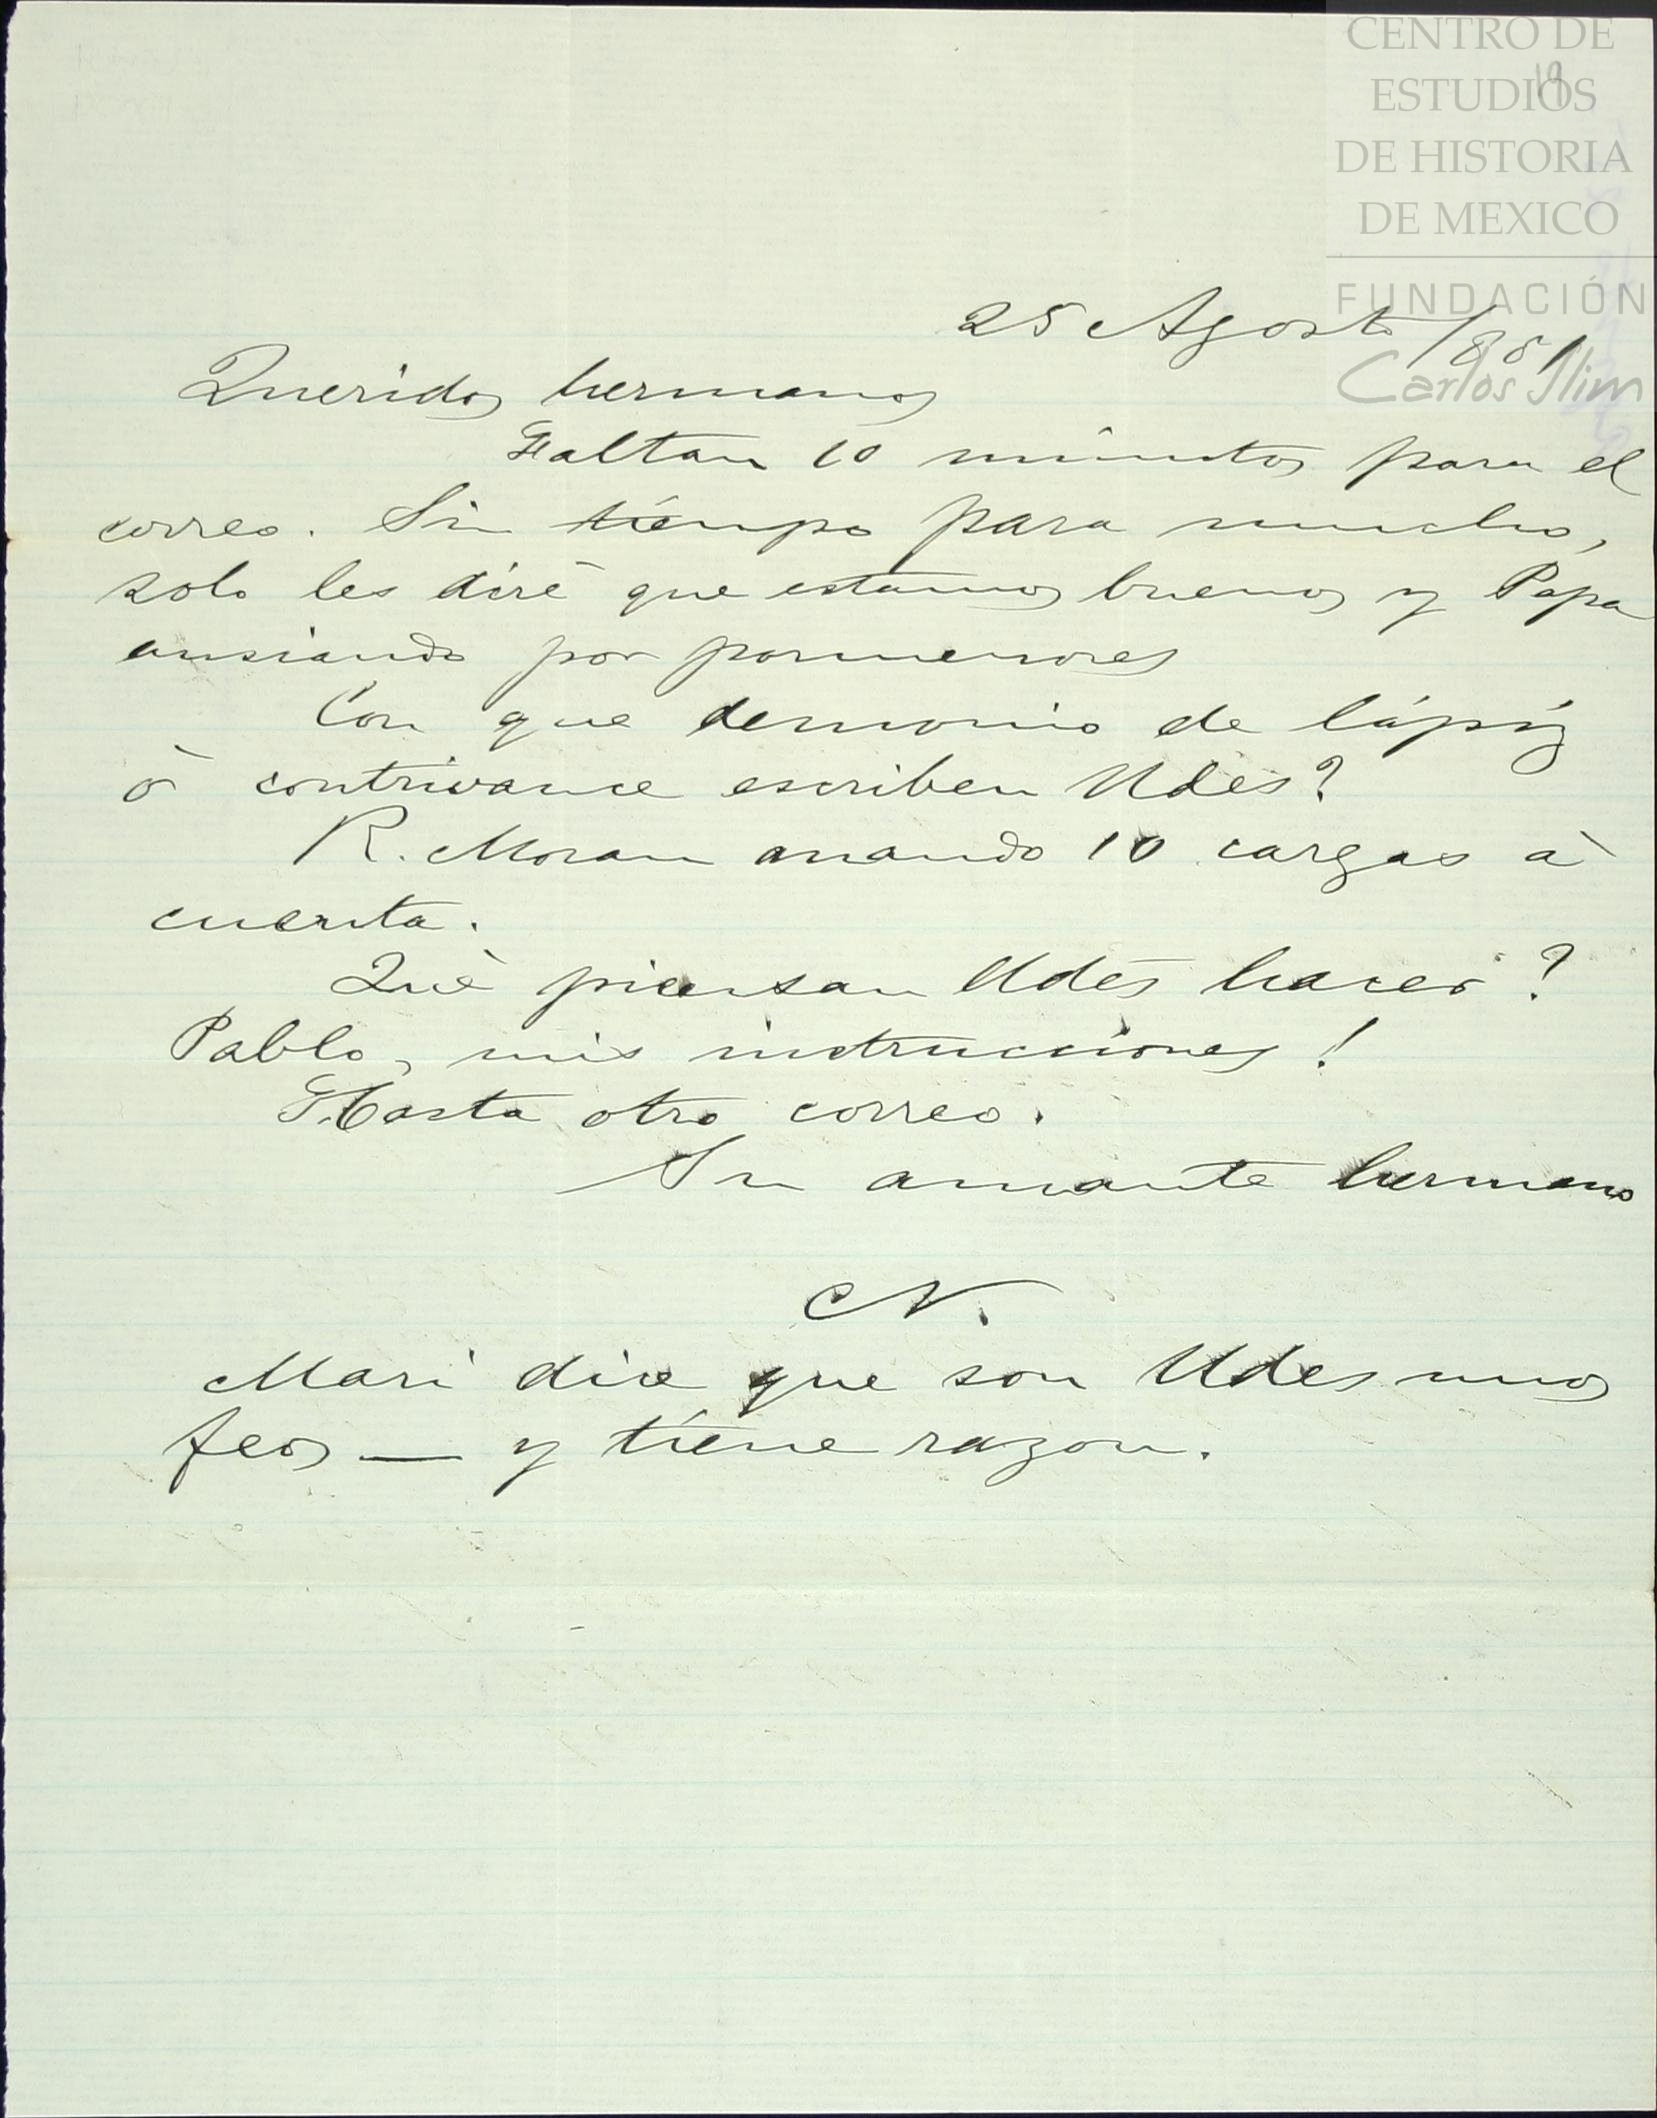 CENTRO DE
ESTUDIOS
DE HISTORIA
DE MEXICO
FUNDACIÓN
Carlos Slim
19
25 Agosto /881
Queridos hermanos
Faltan 10 minutos para el
correo. Sin tiempo para mucho,
solo les diré que estamos buenos y Papa
ansiando por pormenores
Con que demonio de lápiz
ò contrivance escriben Udes?
R. Moran mando 10 cargas à
cuenta.
Què piensan Udes hacer?
Pablo, mis instrucciones!
Hasta otro correo.
Su amante hermano
N.
Mari dice que son Udes unos
feos — y tiene razon.